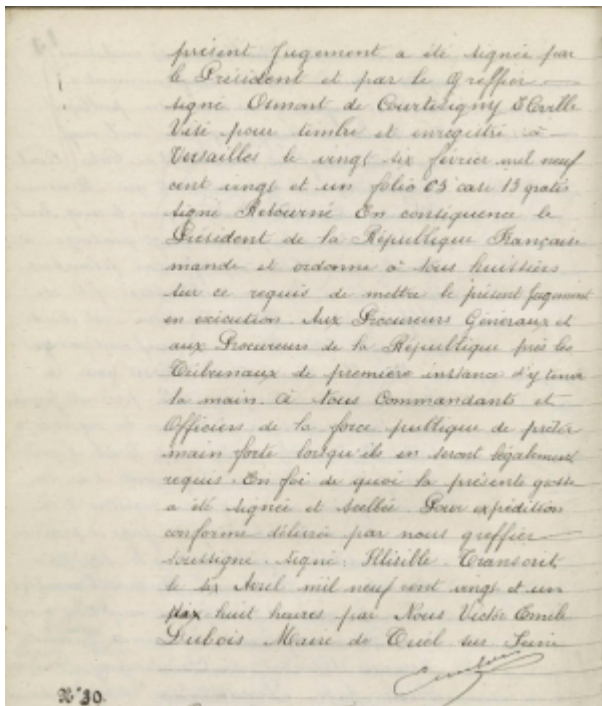 présent Jugement a été signée par
le Président et par le Greffier
signé Osmont de Courtisigny &
Visé pour timbre et enregistré à
Versailles le vingt six février mil neuf
cent vingt et un folio 03 case 13 gratis
signé Retourné En conséquence le
Président de la République Française
mande et ordonne à tous huissiers
sur ce requis de mettre le présent Jugement
en exécution. Aux Procureurs Généraux et
aux Procureurs de la République près les
Tribunaux de première instance d'y tenir
la main. A tous Commandants et
Officiers de la force publique de prêter
main forte lorsqu'ils en seront légalement
requis. En foi de quoi la présente grosse
a été signée et scellée Pour expédition
conforme délivrée par nous greffier
soussigné. signé: Illisible. Transcrit
le six Avril mil neuf cent vingt et un
huit heures par Nous Victor Emile
Dubois Maire de Triel sur Seine
N° 30.